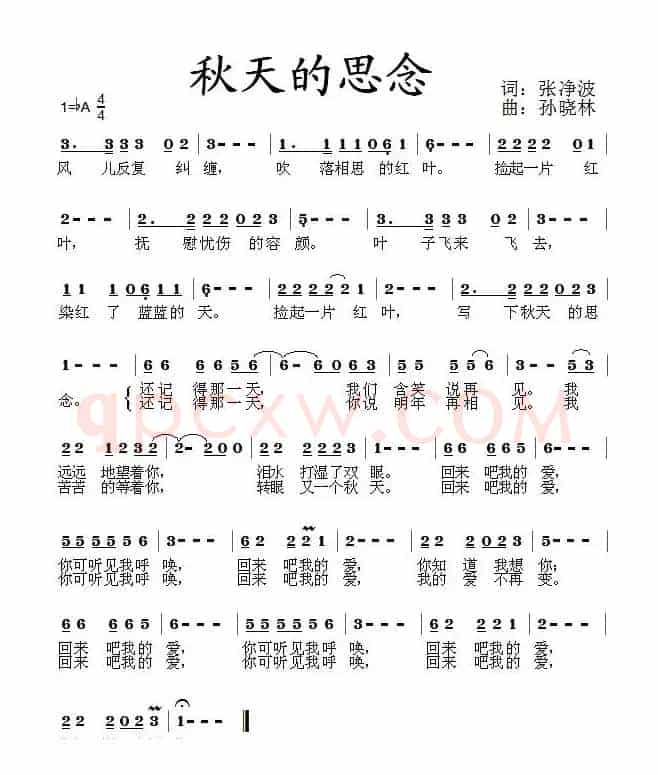 秋天的思念
词：张净波
1=♭A 4/4
曲：孙晓林
3. 3 3 3 0 2 | 3 - - - | 1. 1 1 1 1 0 6 1 | 6 - - - | 2 2 2 2 0 2 |
风 儿反复 纠 缠， 吹 落相思 的红 叶。 捡起一片 红
2 - - - | 2. 2 2 2 2 0 2 3 | 5 - - - | 3. 3 3 3 0 2 | 3 - - - |
叶， 抚 慰忧伤 的容 颜。 叶 子飞来 飞 去，
1 1 1 0 6 1 1 | 6 - - - | 2 2 2 2 2 2 1 | 2 - - - | 2. 2 2 2 2 0 2 3 |
染红 了 蓝蓝的 天。 捡起一片 红 叶， 写 下秋天 的思
1 - - - | 6 6 6 6 5 6 | 6 - 6 0 6 3 | 5 5 5 5 6 | 5 - - 5 3 |
念。 还记 得那一天， 我们 含笑 说再 见。我
还记 得那一天， 你说 明年 再相 见。我
2 2 1 2 3 2 | 2 - 2 0 0 | 5 5 5 5 2 3 | 2 - - - | 6 6 6 6 5 |
远远 地望着你， 泪水 打湿了双 眼。 回来 吧我的 爱，
苦苦 的等着你， 转眼 又一个秋 天。 回来 吧我的 爱，
5 5 5 5 5 6 | 3 - - - | 6 2 2 2 1 | 2 - - - | 2 2 0 2 3 | 5 - - - |
你可听见我呼 唤， 回来 吧我的 爱， 你知 道 我想 你；
你可听见我呼 唤， 回来 吧我的 爱， 我的 爱 不再 变。
6 6 6 6 5 | 6 - - - | 5 5 5 5 5 6 | 3 - - - | 6 2 2 2 1 | 2 - - - |
回来 吧我的 爱， 你可听见我呼 唤， 回来 吧我的 爱，
回来 吧我的 爱， 你可听见我呼 唤， 回来 吧我的 爱，
2 2 2 0 2 3 | 1 - - - ‖
qpcxw.COM